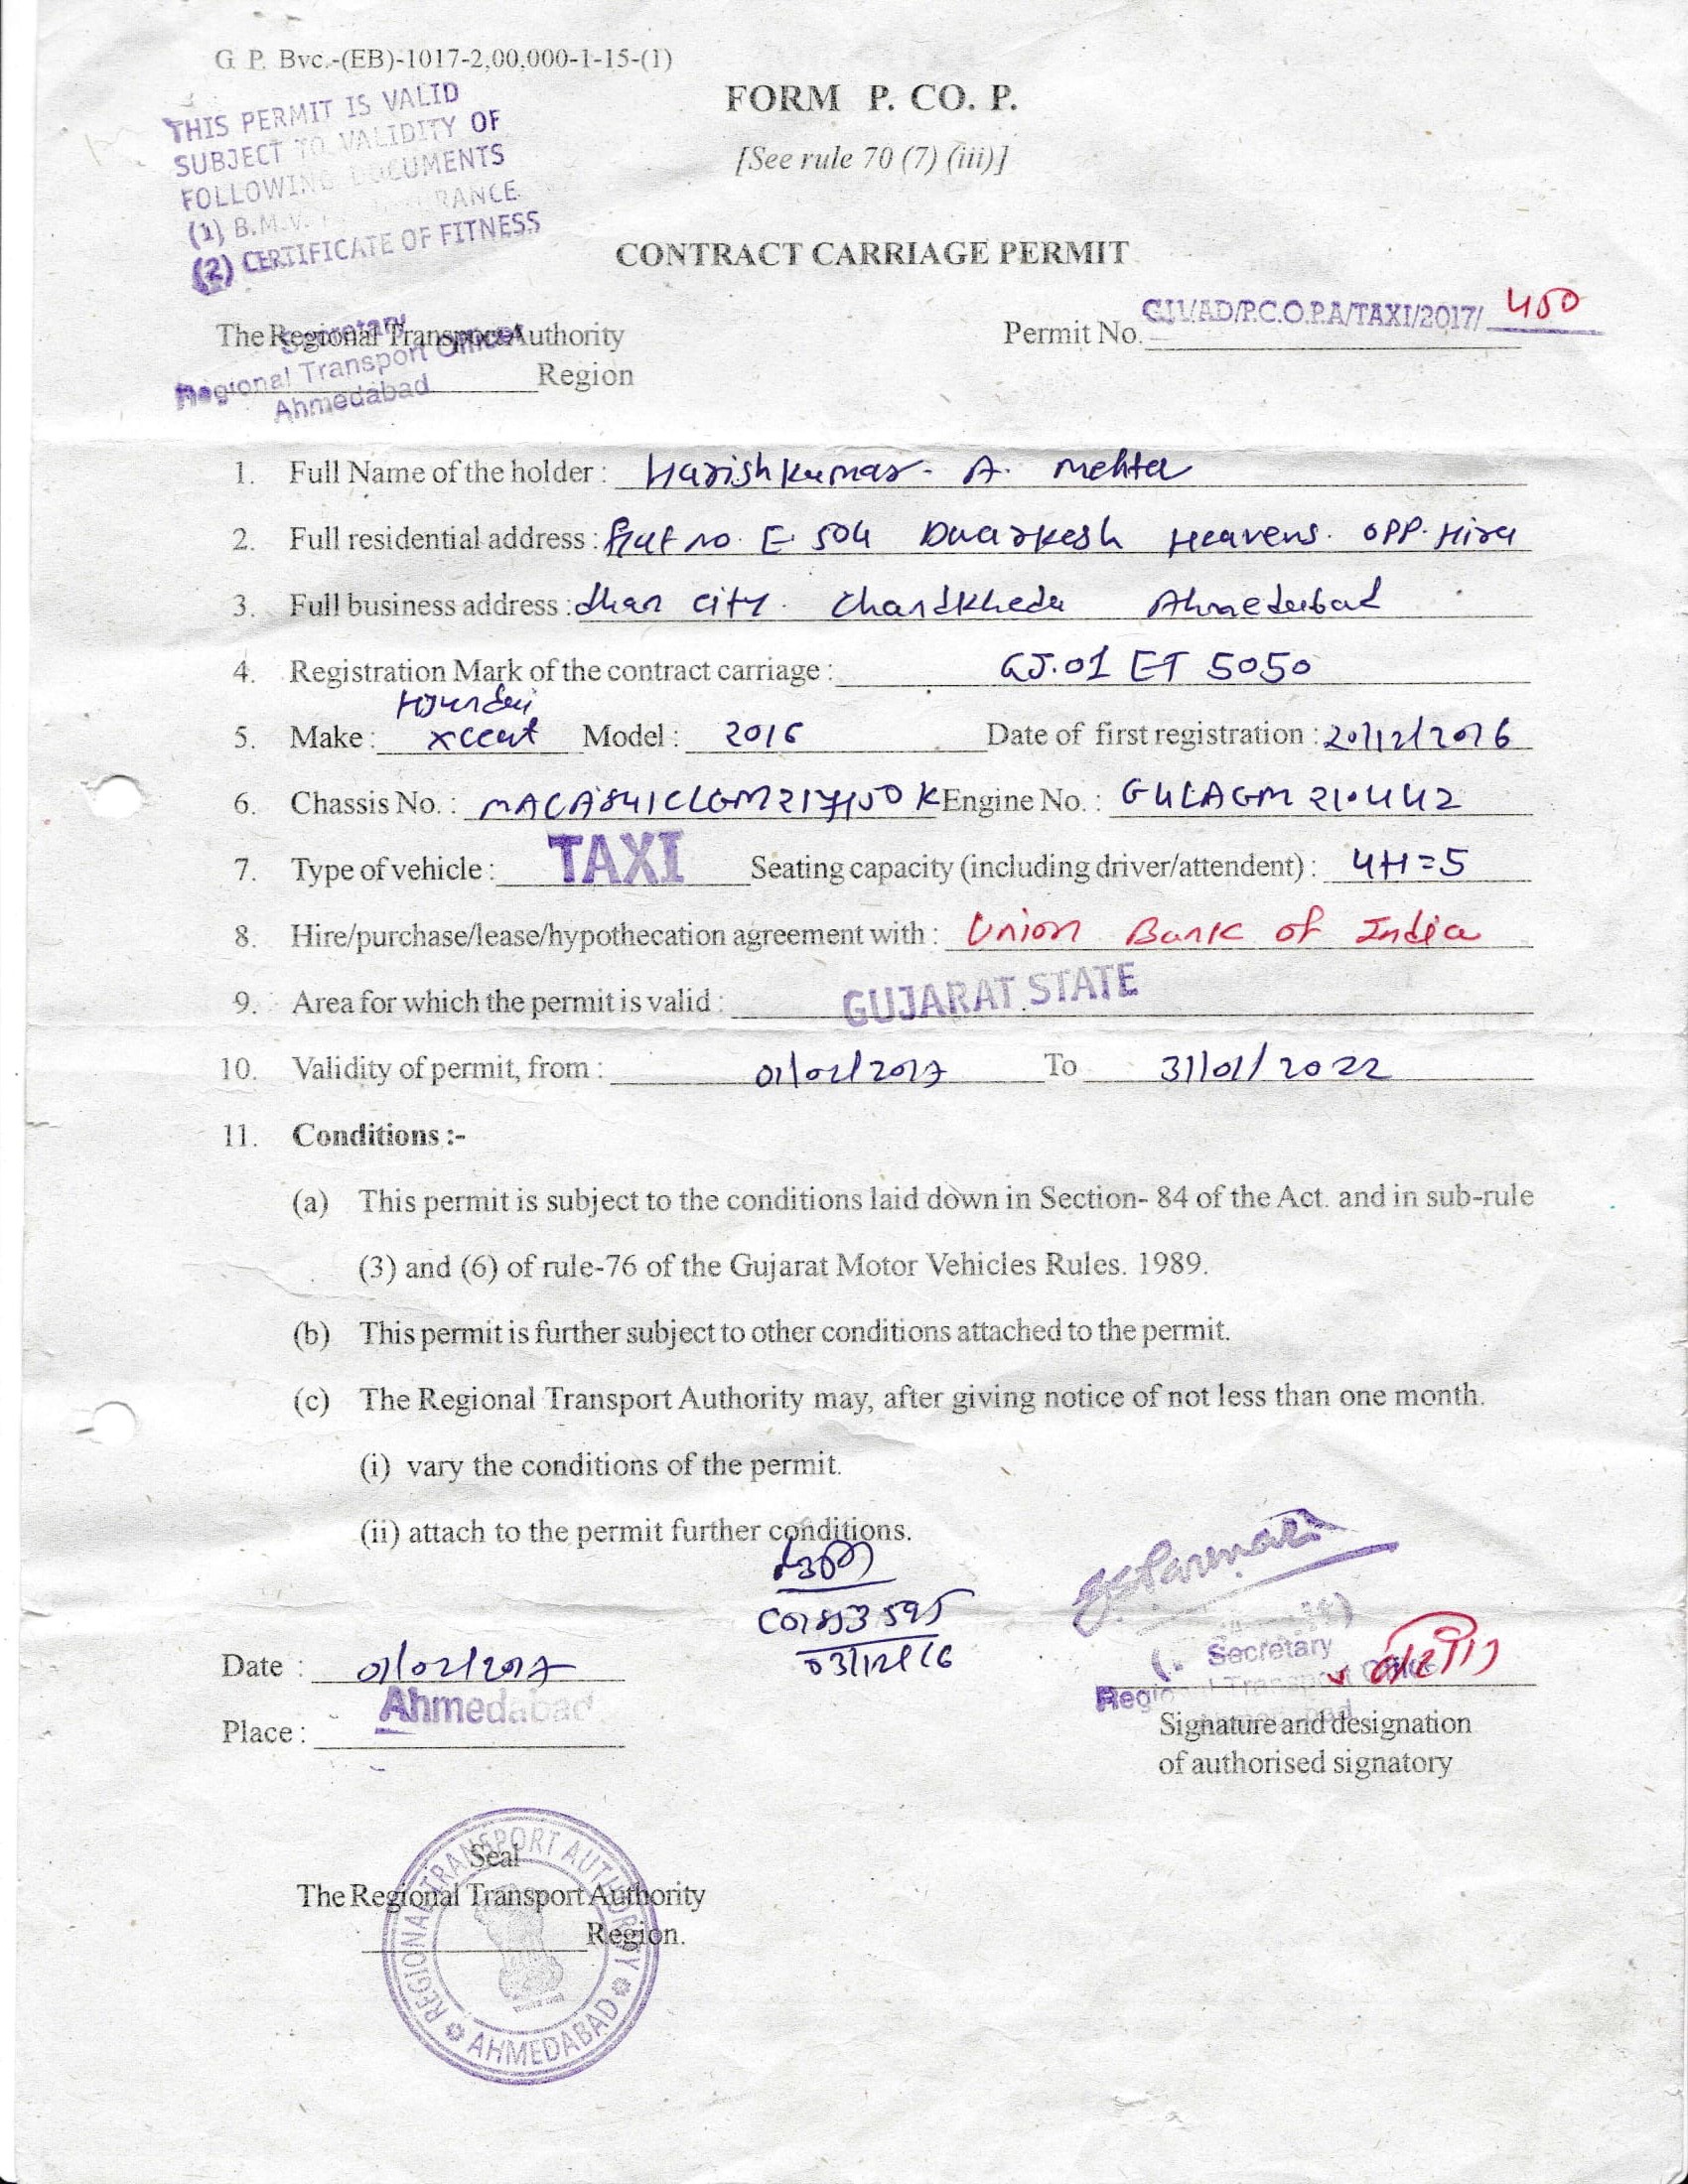 G. P. Bvc.-(EB)-1017-2,00,000-1-15-(1)
THIS PERMIT IS VALID
SUBJECT TO VALIDITY OF
FOLLOWING DOCUMENTS
(1) B.M.V.
(2) CERTIFICATE OF FITNESS
FORM P. CO. P.
[See rule 70 (7) (iii)]
CONTRACT CARRIAGE PERMIT
The Regional Transport Authority
Region
Secretary
Regional Transport Office
Ahmedabad
Permit No. GJ1/AD/P.C.O.P.A/TAXI/2017/ 450
1. Full Name of the holder : Harishkumar. A. Mehta
2. Full residential address : Flat no. E 504 Dwarkesh Heavens. opp. Hira
3. Full business address : dhan city. Chandkheda Ahmedabad
4. Registration Mark of the contract carriage : GJ.01 ET 5050
Hyundai
5. Make : xcent Model : 2016 Date of first registration : 20/12/2016
6. Chassis No. : MALA841CLGM217150 K Engine No. : G4LAGM210442
7. Type of vehicle : TAXI Seating capacity (including driver/attendent) : 4+1=5
8. Hire/purchase/lease/hypothecation agreement with : Union Bank of India
9. Area for which the permit is valid : GUJARAT STATE
10. Validity of permit, from : 01/02/2017 To 31/01/2022
11. Conditions :-
(a) This permit is subject to the conditions laid down in Section- 84 of the Act. and in sub-rule
(3) and (6) of rule-76 of the Gujarat Motor Vehicles Rules. 1989.
(b) This permit is further subject to other conditions attached to the permit.
(c) The Regional Transport Authority may, after giving notice of not less than one month.
(i) vary the conditions of the permit.
(ii) attach to the permit further conditions.
03/12/16
Date : 01/02/2017
Place : Ahmedabad
Secretary
Regional Transport Office
Signature and designation
of authorised signatory
Seal
The Regional Transport Authority
Region.
REGIONAL TRANSPORT AUTHORITY
AHMEDABAD